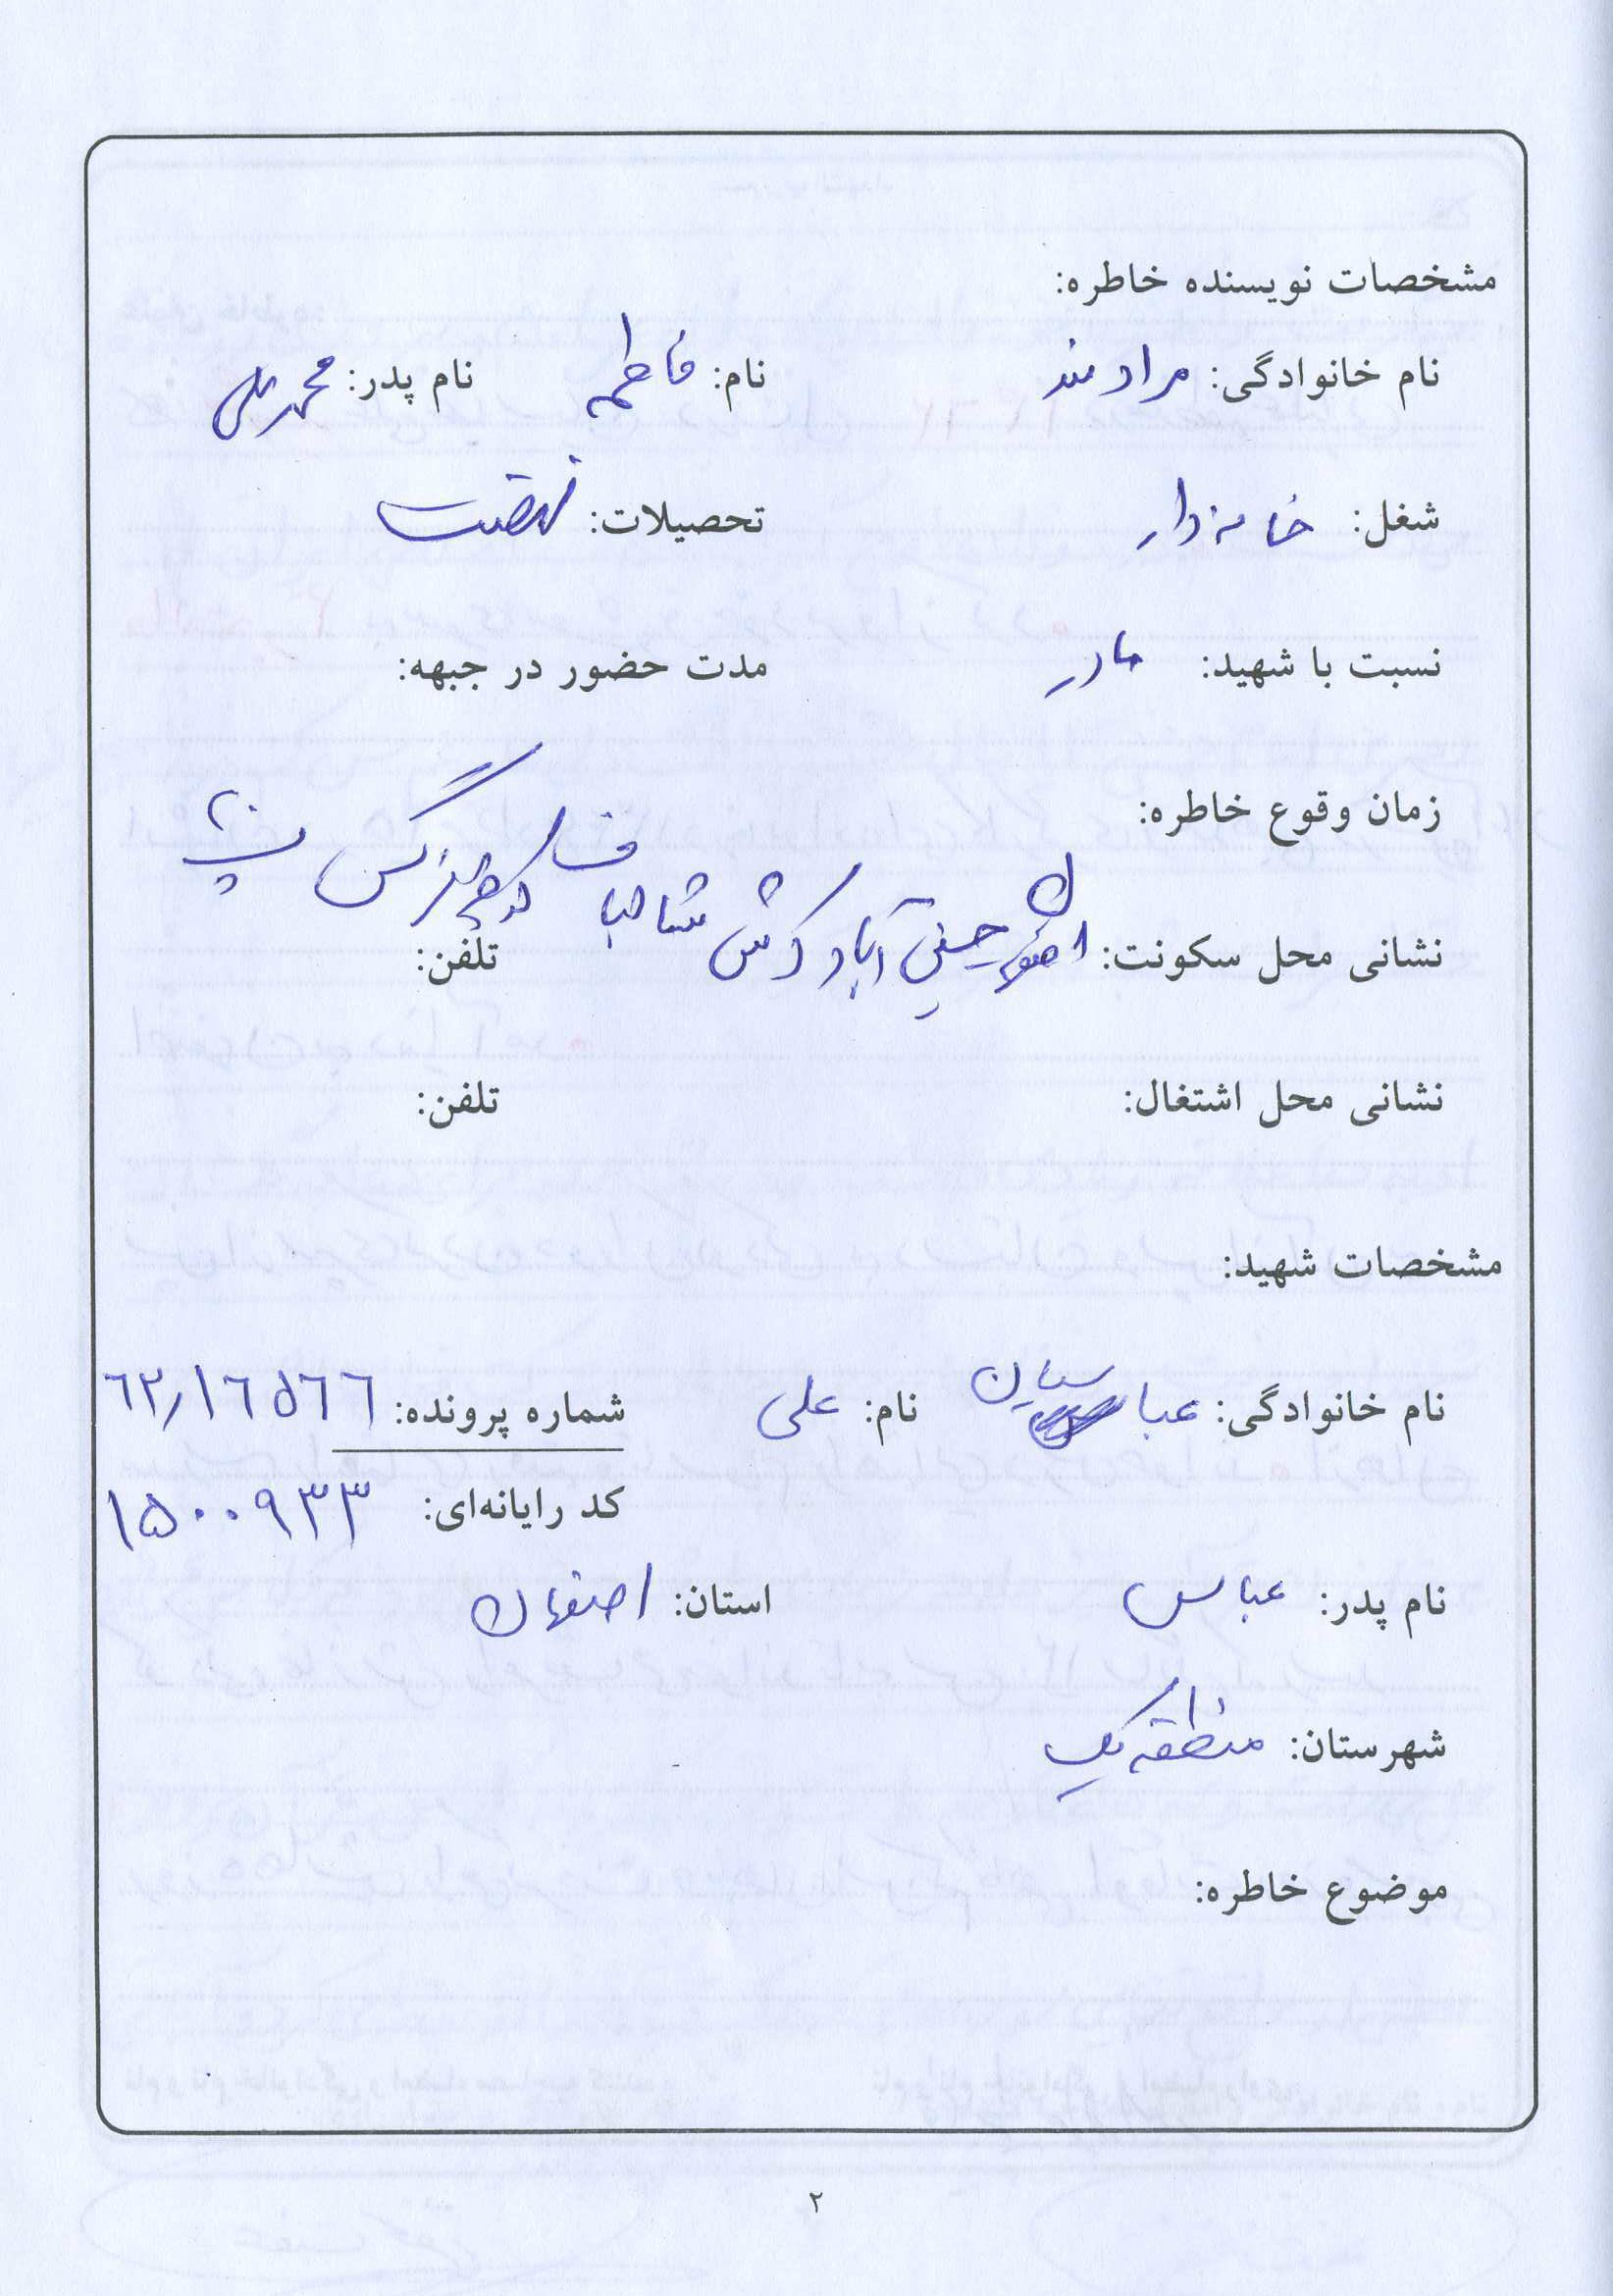 مشخصات نویسنده خاطره:
نام خانوادگی: مرادمند نام: فاطمه نام پدر: محمدعلی
شغل: خانه‌دار تحصیلات: نهضت
نسبت با شهید: مادر مدت حضور در جبهه:
زمان وقوع خاطره:
نشانی محل سکونت: اصفهان حسین آباد نرگس تلفن:
نشانی محل اشتغال: تلفن:
مشخصات شهید:
نام خانوادگی: عباسیان نام: علی شماره پرونده: ٦٢/١٦٥٦٦
کد رایانه‌ای: ١٥٠٠٩٣٣
نام پدر: عباس استان: اصفهان
شهرستان: منطقه یک
موضوع خاطره:
٢